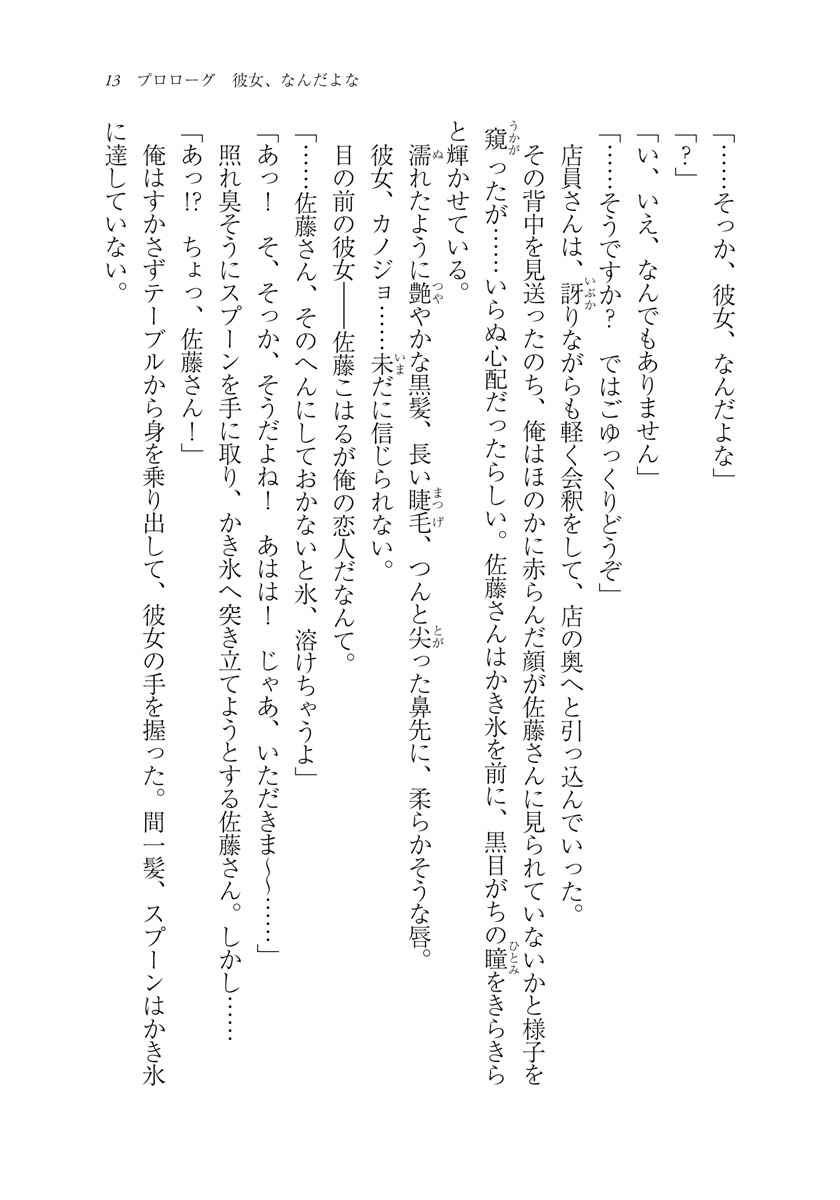 13 プロローグ　彼女、なんだよな
「……そっか、彼女、なんだよな」
「？」
「い、いえ、なんでもありません」
「……そうですか？　ではごゆっくりどうぞ」
店員さんは、訝りながらも軽く会釈をして、店の奥へと引っ込んでいった。
その背中を見送ったのち、俺はほのかに赤らんだ顔が佐藤さんに見られていないかと様子を
窺ったが……いらぬ心配だったらしい。佐藤さんはかき氷を前に、黒目がちの瞳をきらきら
と輝かせている。
濡れたように艶やかな黒髪、長い睫毛、つんと尖った鼻先に、柔らかそうな唇。
彼女、カノジョ……未だに信じられない。
目の前の彼女――佐藤こはるが俺の恋人だなんて。
「……佐藤さん、そのへんにしておかないと氷、溶けちゃうよ」
「あっ！　そ、そっか、そうだよね！　あはは！　じゃあ、いただきま〜〜……」
照れ臭そうにスプーンを手に取り、かき氷へ突き立てようとする佐藤さん。しかし……
「あっ!?　ちょっ、佐藤さん！」
俺はすかさずテーブルから身を乗り出して、彼女の手を握った。間一髪、スプーンはかき氷
に達していない。